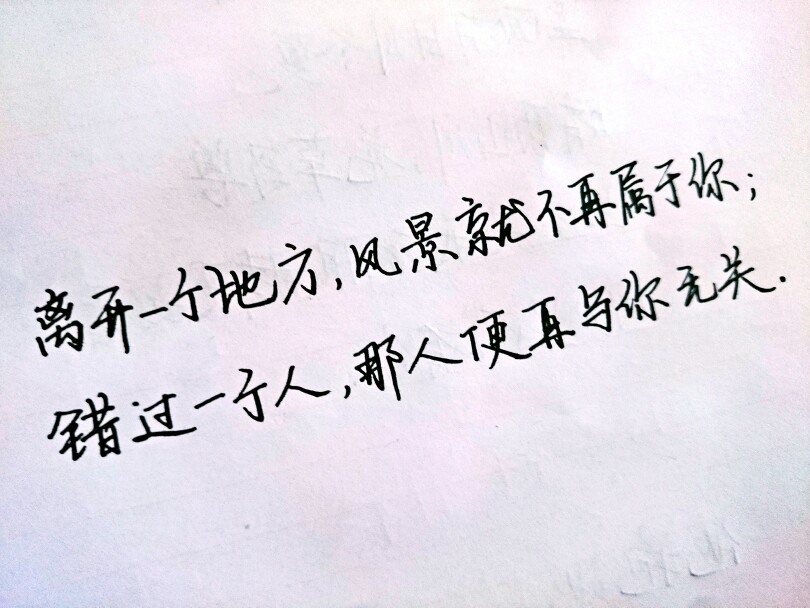 离开一个地方,风景就不再属于你;
错过一个人,那人便再与你无关.